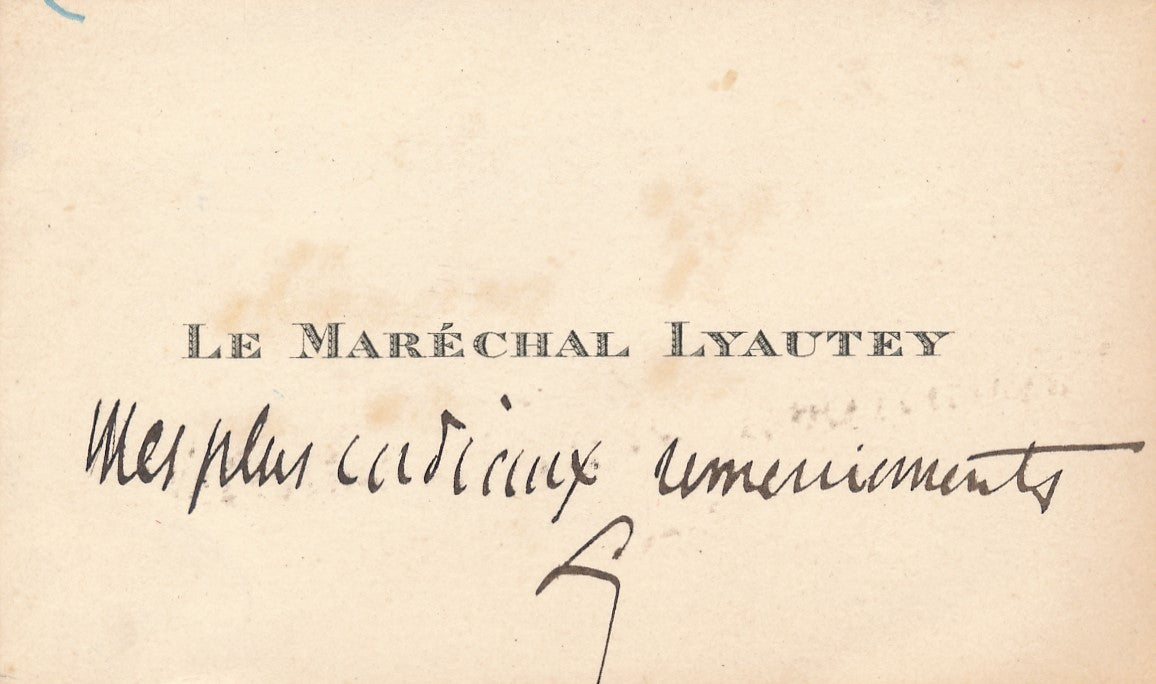 LE MARÉCHAL LYAUTEY
Mes plus cordiaux remerciements
L